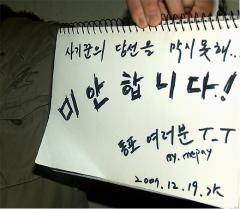 사기꾼의 당선을 막지못해..
미안합니다!
동포 여러분 T_T
By. mepay
2007.12.19.水